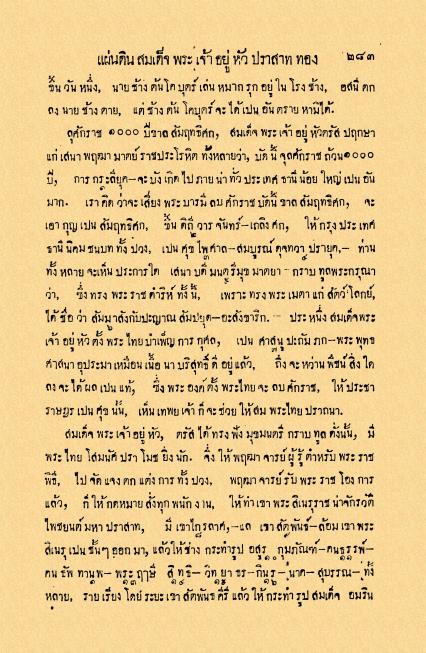 แผ่นดิน สมเด็จ พระ เจ้า อยู่ หัว ปราสาท ทอง ๒๘๓
ขึ้น วัน หนึ่ง, นาย ช้าง ต้น โค บุตร์ เล่น หมาก รุก อยู่ ใน โรง ช้าง, อสนี ตก
ลง นาย ช้าง ตาย, แต่ ช้าง ต้น โคบุตร์ จะ ได้ เปน อันตราย หามิได้.
ลุศักราช ๑๐๐๐ ปีขาล สัมฤทธิศก, สมเด็จ พระ เจ้า อยู่ หัวตรัส ปฤกษา
แก่ เสนา พฤฒา มาตย์ ราชประโรหิต ทั้งหลายว่า, บัด นี้ จุลศักราช ถ้วน๑๐๐๐
ปี, การ กระลียุค–จะ บัง เกิด ไป ภาย น่า ทั่ว ประ เทศ ธานี น้อย ใหญ่ เปน อัน
มาก. เรา คิด ว่าจะ เสี่ยง พระ บารมี ลบ ศักราช บัดนี้ ขาล สัมฤทธิศก, จะ
เอา กุญ เปน สัมฤทธิศก, ขึ้น ดิถี วาร จันทร์–เถลิง ศก, ให้ กรุง ประ เทศ
ธานี นิคม ชนบท ทั้ง ปวง, เปน ศุข ไพศาล–สมบูรณ์ ดุจทวา ปรายุค,– ท่าน
ทั้ง หลาย จะเห็น ประการใด เสนา บดี มนตรีมุข มาตยา – กราบ ทูลพระกรุณา
ว่า, ซึ่ง ทรง พระ ราช ดำริห์ ทั้ง นี้, เพราะ ทรง พระ เมตา แก่ สัตว์ โลกย์,
ได้ ชื่อ ว่า สัมมาสังกัปะญาณ สัมปยุต–อะสังขาริก. – ประ หนึ่ง สมเด็จพระ
เจ้า อยู่ หัว ตั้ง พระ ไทย บำเพ็ญ การ กุศล, เปน ศาสนู ปะถัม ภก–พระ พุทธ
ศาสนา อุประมา เหมือน เนื้อ นา บริสุทธิ์ ดี อยู่ แล้ว, ถึง จะ หว่าน พืชน์ สิ่ง ใด
ลง จะ ได้ ผล เปน แท้, ซึ่ง พระ องค์ ตั้ง พระไทย จะ ลบ ศักราช, ให้ ประชา
ราษฎร เปน ศุข นั้น, เห็น เทพย เจ้า ก็ จะ ช่วย ให้ สม พระไทย ปราถนา.
สมเด็จ พระ เจ้า อยู่ หัว, ตรัส ได้ ทรง ฟัง มุขมนตรี กราบ ทูล ดั่งนั้น, มี
พระ ไทย โสมนัศ ปรา โมช ยิ่ง นัก. จึ่ง ให้ พฤฒา จารย์ ผู้ รู้ ตำหรับ พระ ราช
พิธี, ไป จัด แจง ตก แต่ง การ ทั้ง ปวง, พฤฒา จารย์ รับ พระ ราช โอง การ
แล้ว, ก็ ให้ กดหมาย สั่งทุก พนัก งาน, ให้ ทำ เขา พระ สิเนรุราช น่าจักรวัดิ
ไพชยนต์ มหา ปราสาท, มี เขาไกรลาศ,–แล เขา สัตพันธ์–ล้อม เขา พระ
สิเนรุ เปน ชั้นๆ ออก มา, แล้วให้ช่าง กระทำ รูป อสูร กุมภัณฑ์–คนธรรพ์–
ทานพ–พระ ฤๅษี สิทธิ–วิทยา ธร–กินร–นาค–สุบรรณ–ทั้ง
หลาย, ราย เรียง โดย์ ระยะ เขา สัตพันธ์ คีรี แล้ว ให้ กระทำ รูป สมเด็จ อมริน